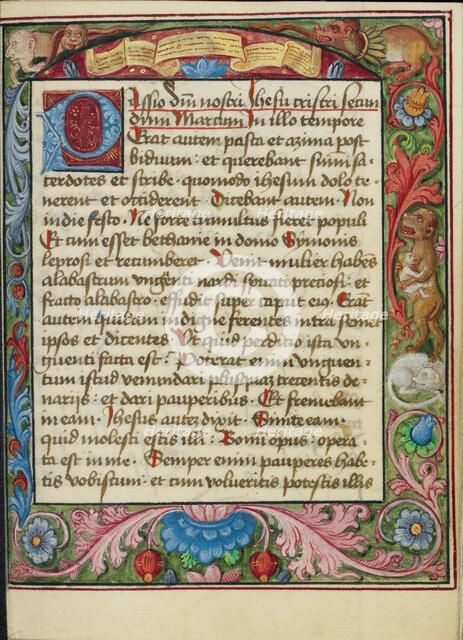 Passio dnī nostri Jhesu cristi secun
dum Marcum In illo tempore
Erat autem pasca et azima post
biduum · et querebant sūmi sa
cerdotes et scribe · quomodo ihesum dolo te
nerent et occiderent · Dicebant autem · Non
in die festo · Ne forte tumultus fieret populi
Et cum esset bethanie in domo Symonis
leprosi et recumberet · Venit mulier habēs
alabastrum ungēti nardi spicati preciosi · et
fracto alabastro · effudit super caput eiꝫ · Erāt
autem quidam indigne ferentes intra semet
ipsos et dicentes · Ut quid perditio ista un
guenti facta est · Poterat enim unguen
tum istud venundari plusquaꝫ trecentis de
nariis · et dari pauperibus · Et fremebant
in eam · Jhesus auteꝫ dixit · Sinite eam ·
quid molesti estis illi · Bonū opus · opera
ta est in me · Semper enim pauperes habe
tis vobiscum · et cum volueritis potestis illis
Heritage